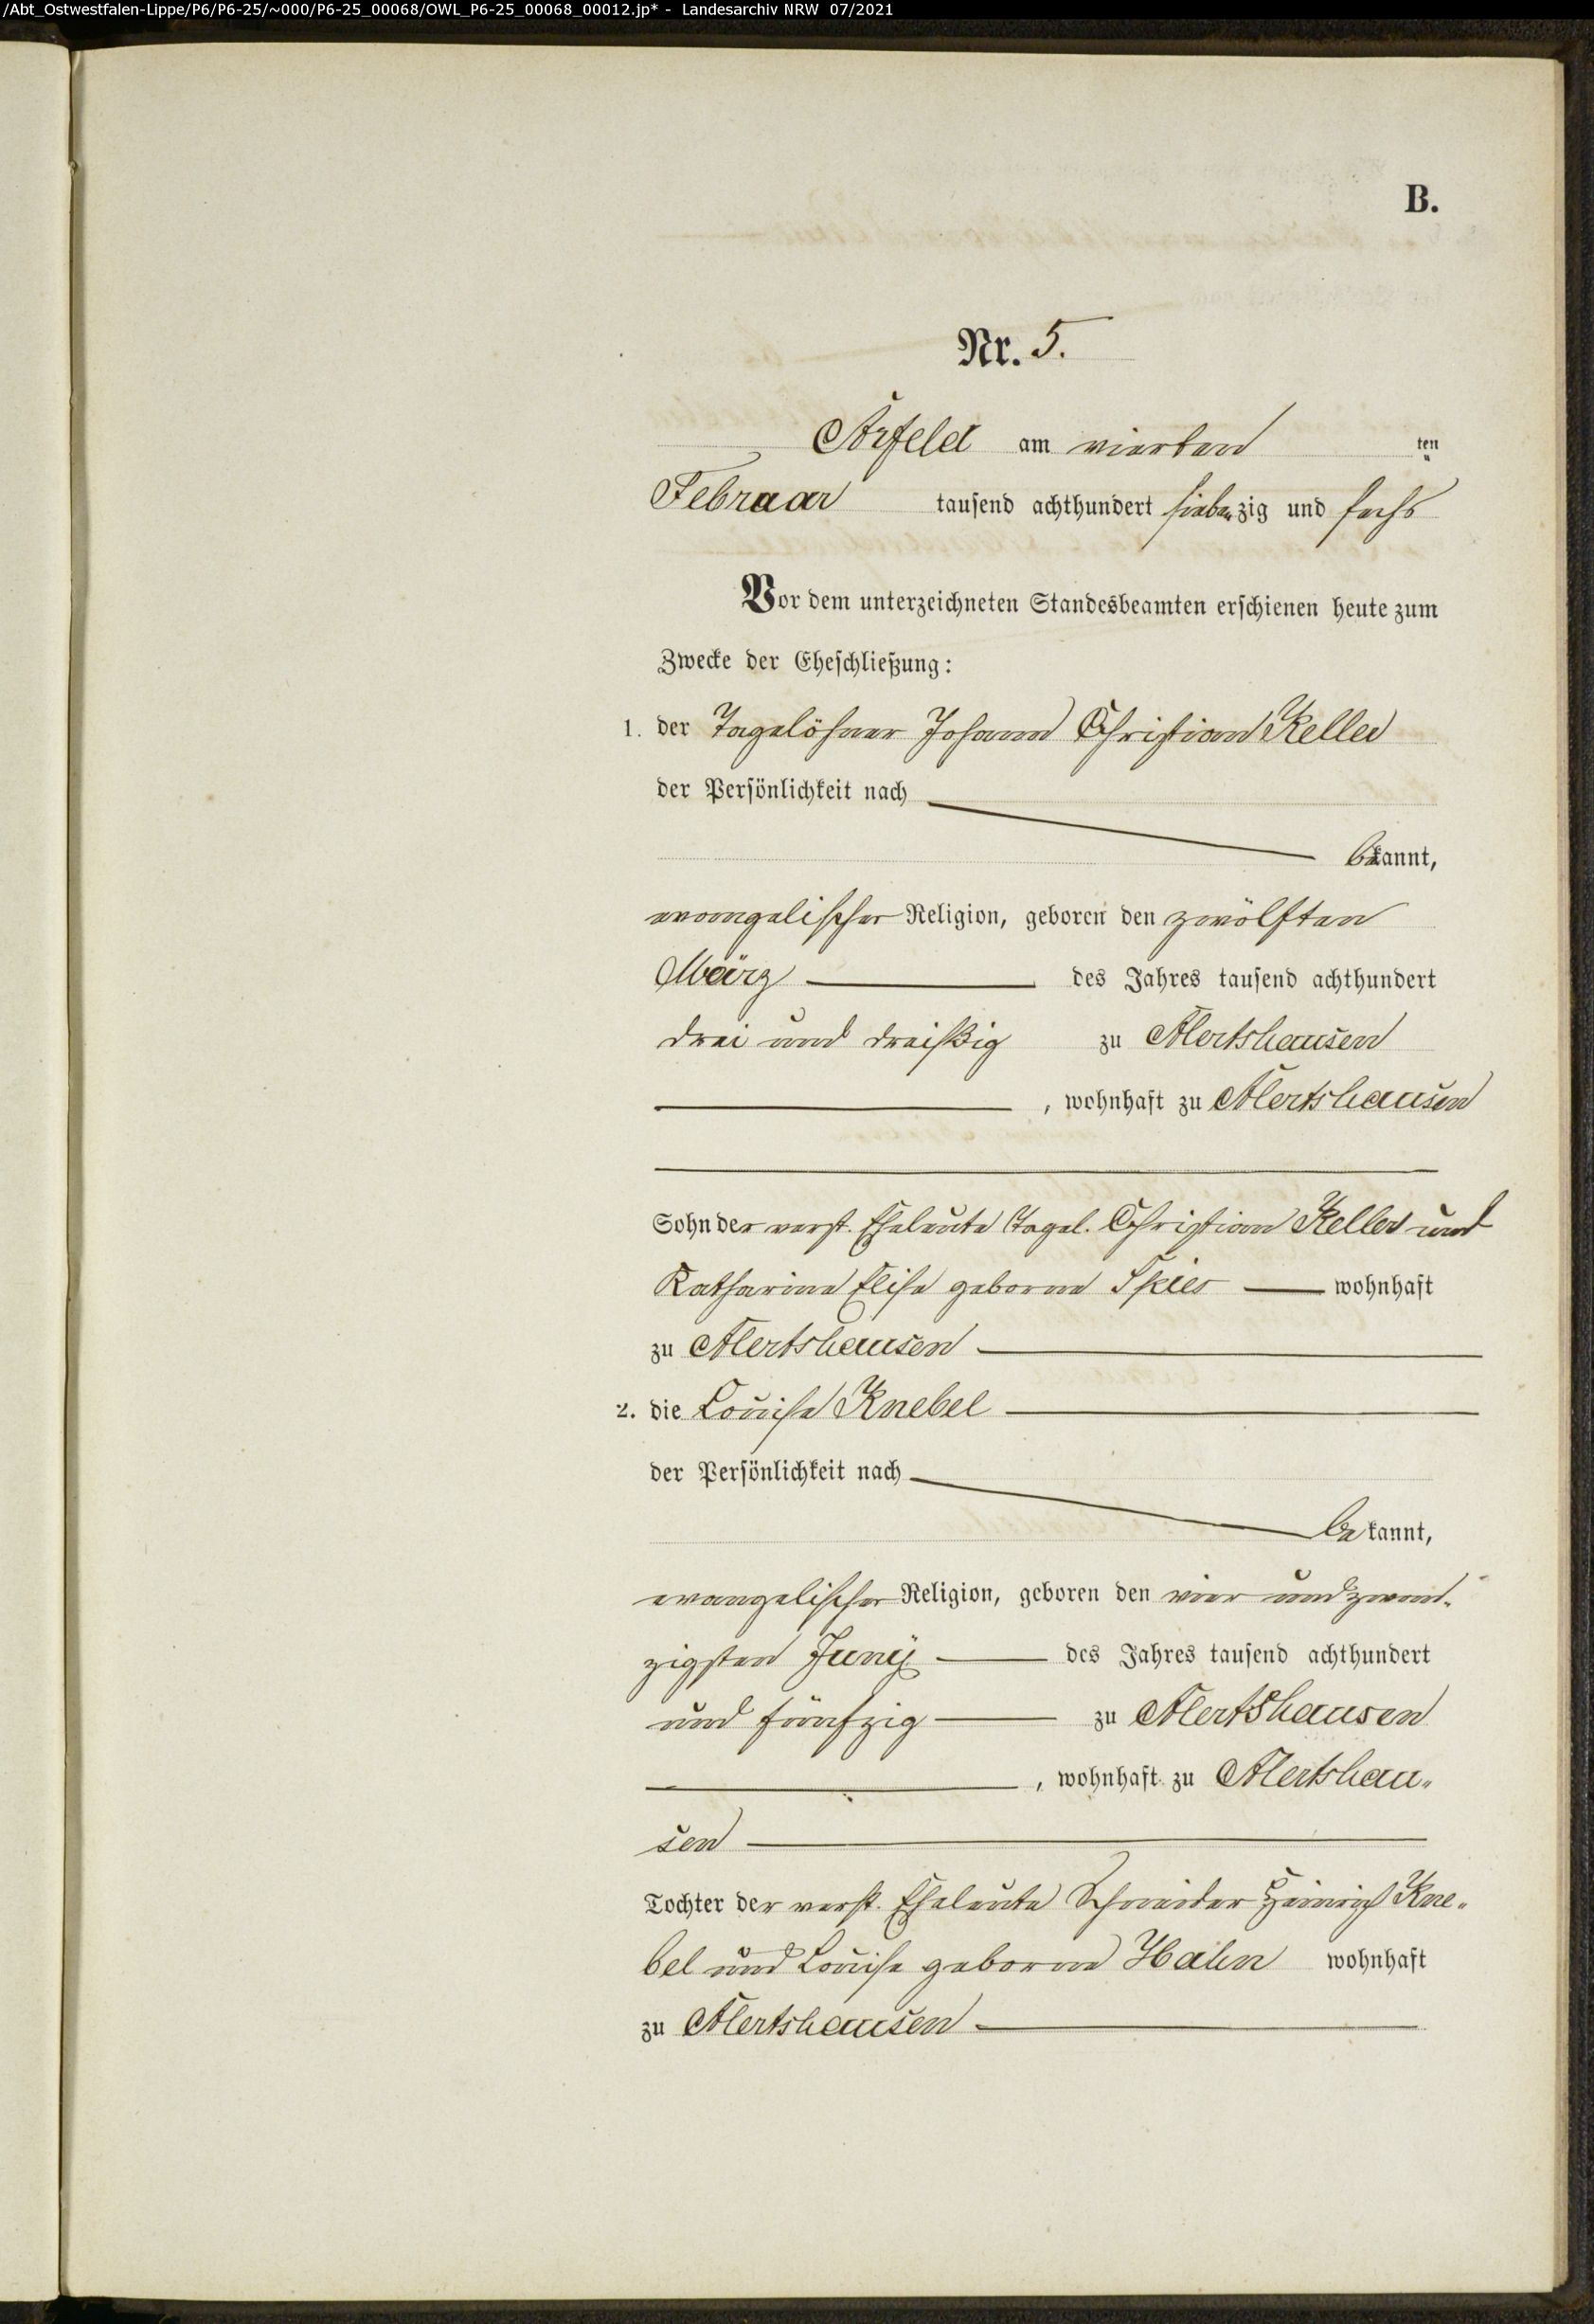 /Abt_Ostwestfalen-Lippe/P6/P6-25/~000/P6-25_00068/OWL_P6-25_00068_00012.jp* - Landesarchiv NRW 07/2021
B.
Nr. 5.
Arfeld am vierten ten
Februar tausend achthundert siebenzig und sechs
Vor dem unterzeichneten Standesbeamten erschienen heute zum
Zwecke der Eheschließung:
1. der Tagelöhner Johann Christian Keller
der Persönlichkeit nach
bekannt,
evangelischer Religion, geboren den zwölften
März des Jahres tausend achthundert
drei und dreißig zu Alertshausen
, wohnhaft zu Alertshausen
Sohn der verst. Eheleute Tagel. Christian Keller und
Katharina Elise geborne Spies wohnhaft
zu Alertshausen
2. die Louise Knebel
der Persönlichkeit nach
bekannt,
evangelischer Religion, geboren den vier und zwan-
zigsten Juny des Jahres tausend achthundert
und fünfzig zu Alertshausen
, wohnhaft zu Alertshau-
sen
Tochter der verst. Eheleute Schneider Heinrich Kne-
bel und Louise geborne Hahn wohnhaft
zu Alertshausen